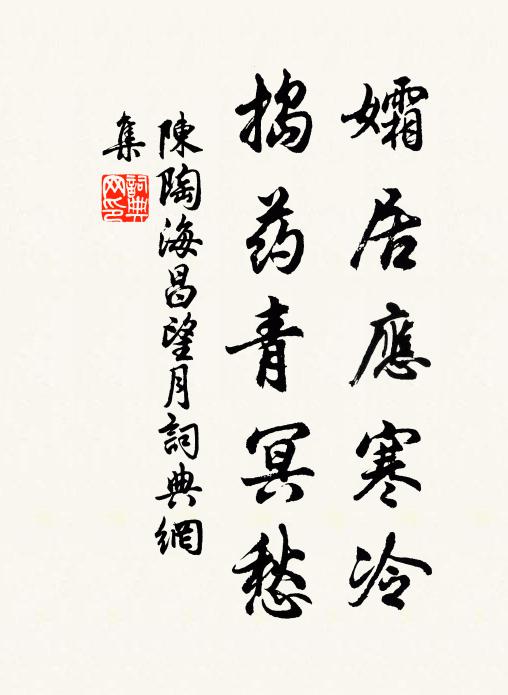 孀居應寒冷
搗药青冥愁
陳陶海昌望月詞典網
集
詞典網印